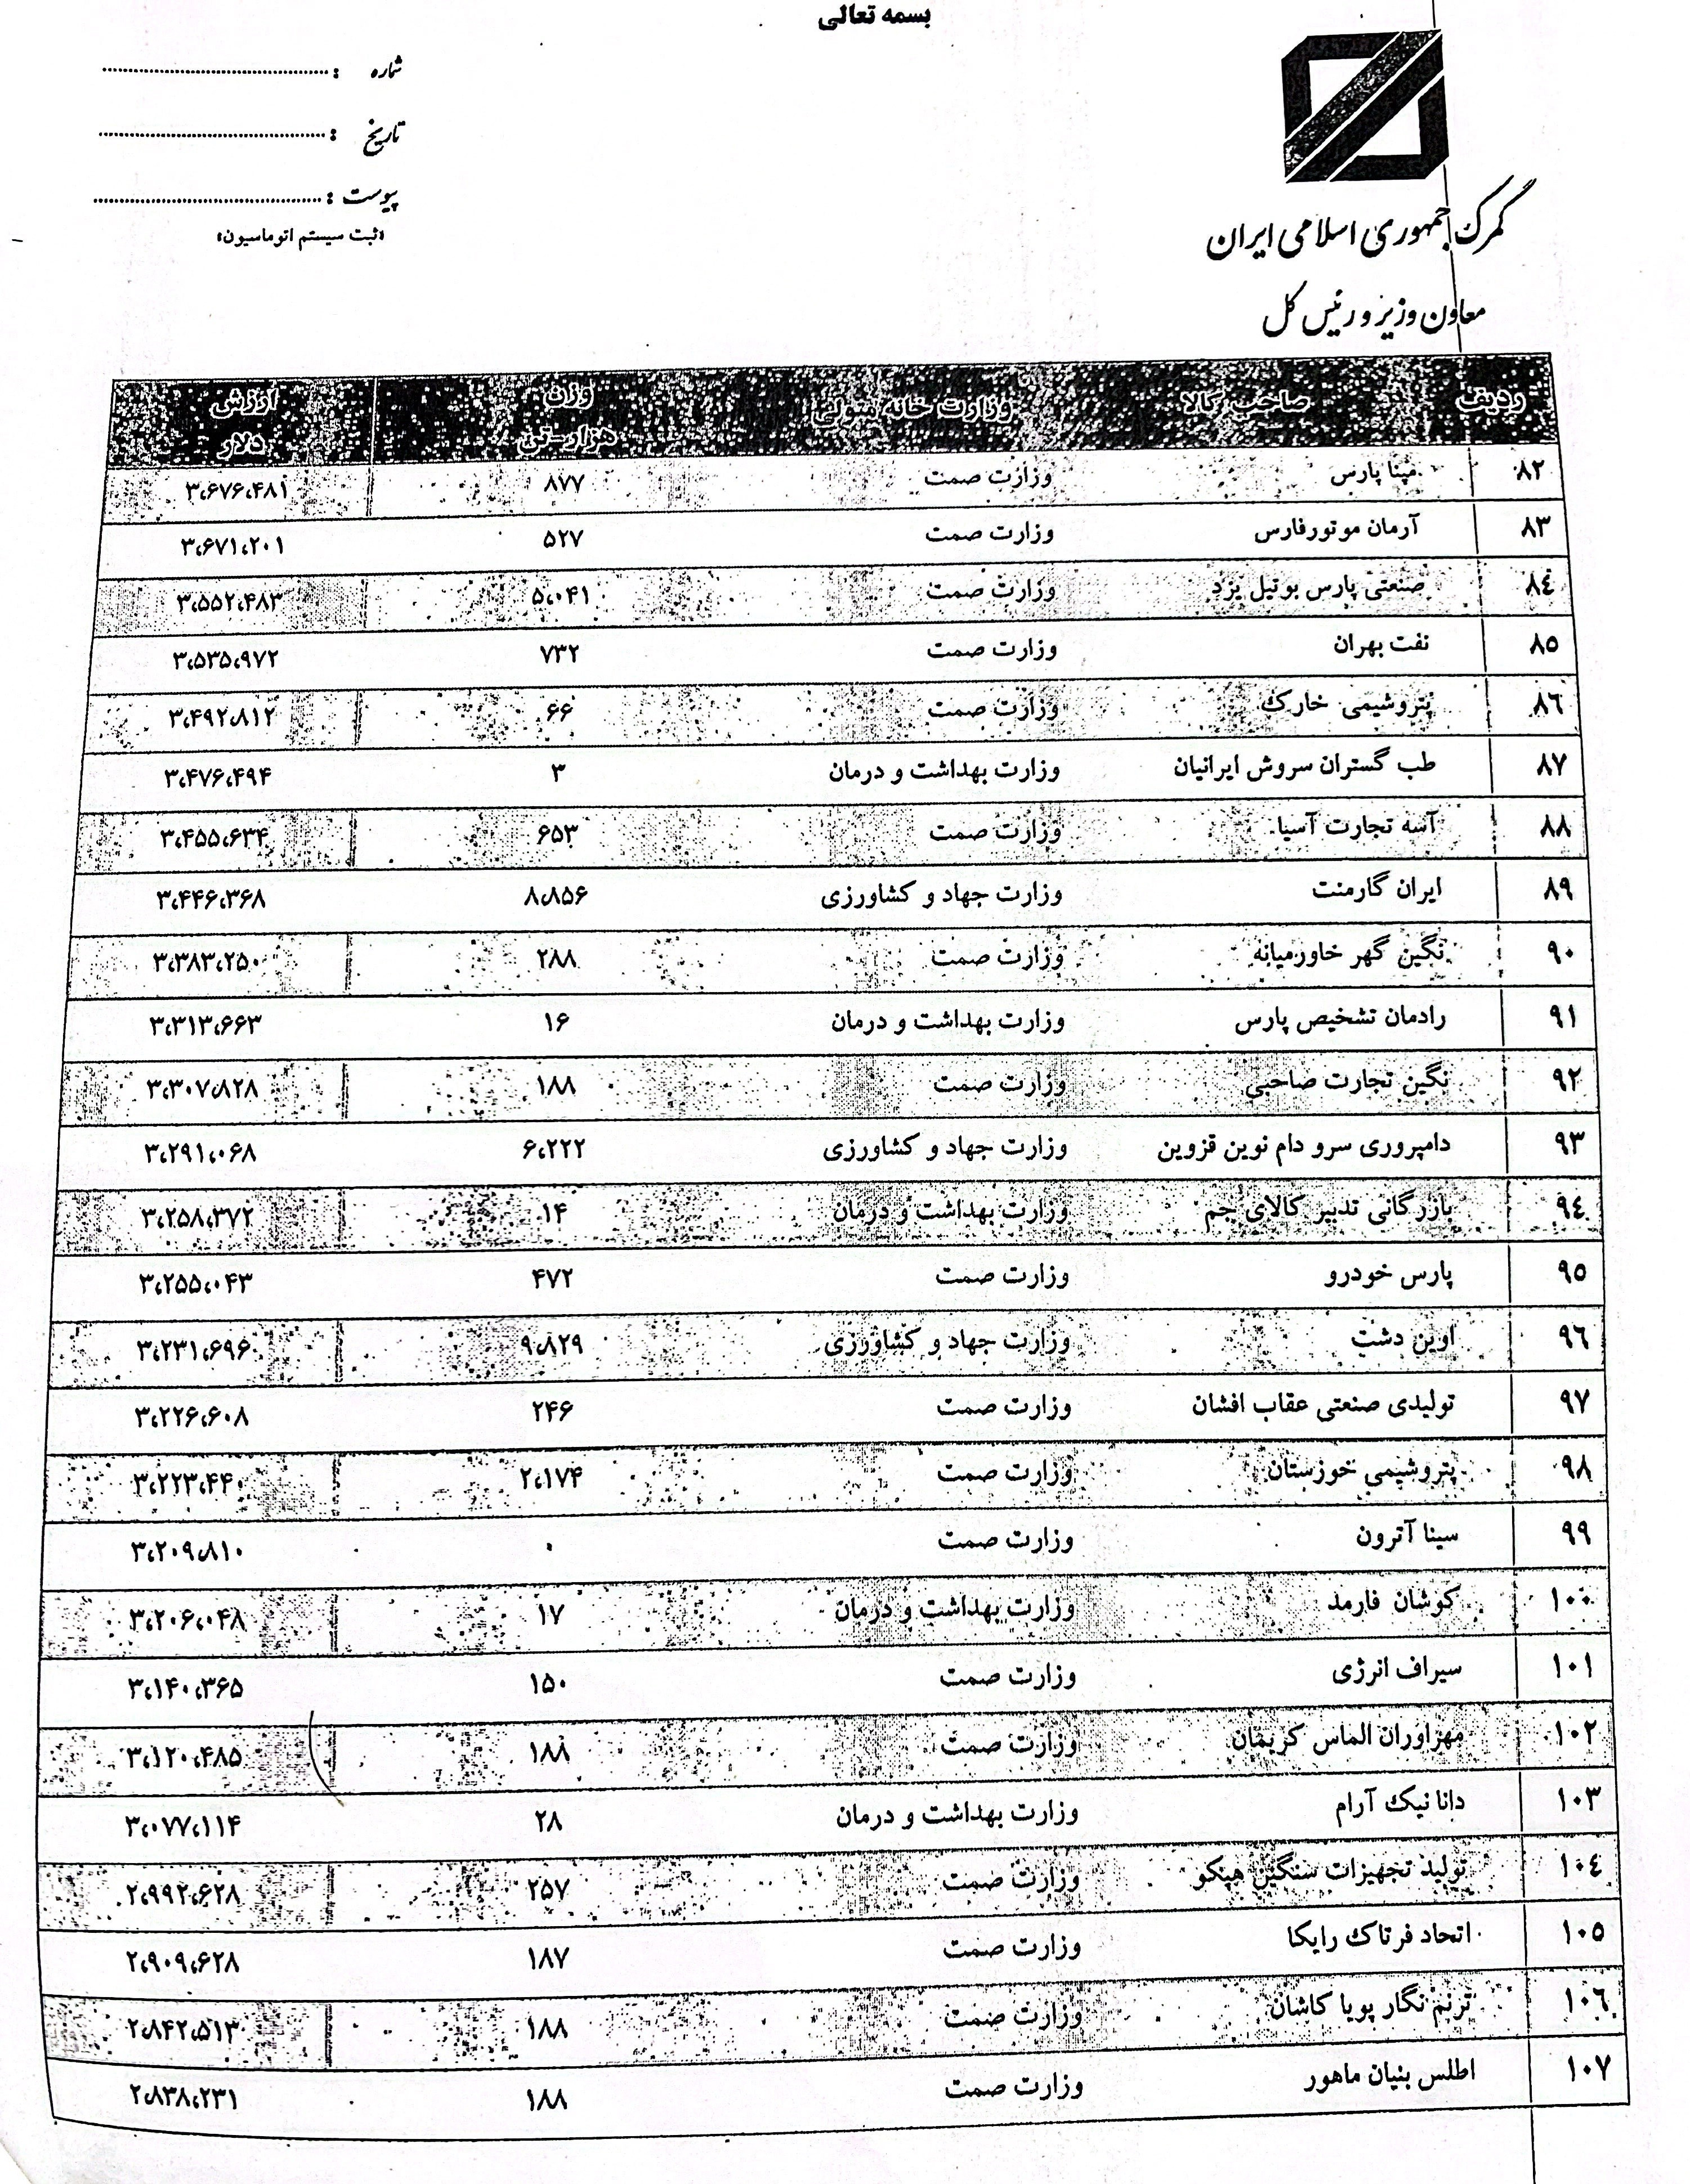 بسمه تعالی
شماره :
تاریخ :
پیوست :
«ثبت سیستم اتوماسیون»
گمرک جمهوری اسلامی ایران
معاون وزیر و رئیس کل
ردیف صاحب کالا وزارت خانه متولی وزن هزار-تن ارزش دلار
٨٢ مپنا پارس وزارت صمت ۸۷۷ ۳،۶۷۶،۴۸۱
٨٣ آرمان موتور فارس وزارت صمت ۵۲۷ ۳،۶۷۱،۲۰۱
٨٤ صنعتی پارس بوتیل یزد وزارت صمت ۵،۰۴۱ ۳،۵۵۲،۴۸۳
٨٥ نفت بهران وزارت صمت ۷۳۲ ۳،۵۳۵،۹۷۲
٨٦ پتروشیمی خارک وزارت صمت ۶۶ ۳،۴۹۲،۸۱۲
٨٧ طب گستران سروش ایرانیان وزارت بهداشت و درمان ۳ ۳،۴۷۶،۴۹۴
٨٨ آسه تجارت آسیا وزارت صمت ۶۵۳ ۳،۴۵۵،۶۳۴
٨٩ ایران گارمنت وزارت جهاد و کشاورزی ۸،۸۵۶ ۳،۴۴۶،۳۶۸
٩٠ نگین گهر خاورمیانه وزارت صمت ۲۸۸ ۳،۳۸۳،۲۵۰
٩١ رادمان تشخیص پارس وزارت بهداشت و درمان ۱۶ ۳،۳۱۳،۶۶۳
٩٢ نگین تجارت صاحبی وزارت صمت ۱۸۸ ۳،۳۰۷،۸۲۸
٩٣ دامپروری سرو دام نوین قزوین وزارت جهاد و کشاورزی ۶،۲۲۲ ۳،۲۹۱،۰۶۸
٩٤ بازرگانی تدبیر کالای جم وزارت بهداشت و درمان ۱۴ ۳،۲۵۸،۳۷۲
٩٥ پارس خودرو وزارت صمت ۴۷۲ ۳،۲۵۵،۰۴۳
٩٦ اوین دشت وزارت جهاد و کشاورزی ۹،۸۲۹ ۳،۲۳۱،۶۹۶
٩٧ تولیدی صنعتی عقاب افشان وزارت صمت ۲۴۶ ۳،۲۲۶،۶۰۸
٩٨ پتروشیمی خوزستان وزارت صمت ۲،۱۷۴ ۳،۲۲۳،۴۴۰
٩٩ سینا آترون وزارت صمت ۰ ۳،۲۰۹،۸۱۰
١٠٠ کوشان فارمد وزارت بهداشت و درمان ۱۷ ۳،۲۰۶،۰۴۸
١٠١ سیراف انرژی وزارت صمت ۱۵۰ ۳،۱۴۰،۳۶۵
١٠٢ مهرآوران الماس کریمان وزارت صمت ۱۸۸ ۳،۱۲۰،۴۸۵
١٠٣ دانا نیک آرام وزارت بهداشت و درمان ۲۸ ۳،۰۷۷،۱۱۴
١٠٤ تولید تجهیزات سنگین هپکو وزارت صمت ۲۵۷ ۲،۹۹۲،۶۲۸
١٠٥ اتحاد فرتاک رایکا وزارت صمت ۱۸۷ ۲،۹۰۹،۶۲۸
١٠٦ ترنم نگار پویا کاشان وزارت صمت ۱۸۸ ۲،۸۴۲،۵۱۳
١٠٧ اطلس بنیان ماهور وزارت صمت ۱۸۸ ۲،۸۳۸،۲۳۱